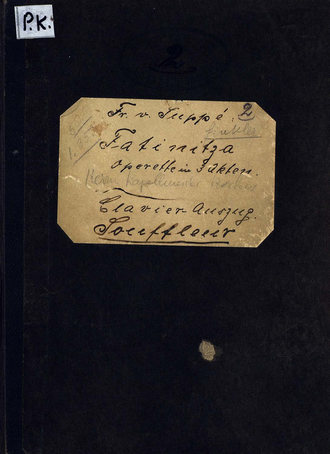 P.K.
2
Fr. v. Suppé. 2
Fatinitza
Operette in 3 Akten.
Herrn Kapellmeister
Clavier-Auszug.
Souffleur